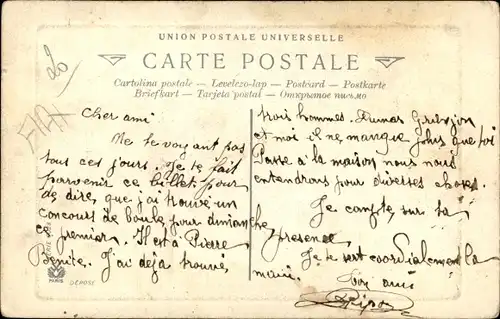 UNION POSTALE UNIVERSELLE
CARTE POSTALE
Cartolina postale — Levelező-lap — Postcard — Postkarte
Briefkart — Tarjeta postal — Открытое письмо
Cher ami
Me te voyant pas
tous ces jours. Je te fait
parvenir ce billet pour
de dire, que j'ai trouve un
concours de boule pour dimanche
ce premier. Il est à Pierre
Benite. J'ai deja trouvé
trois hommes. Dumas
et moi il ne manque plus que toi
Passe a la maison nous nous
entendrons pour diverses choses.
Je compte, sur ta
presence
Je te sert cordialement la
main. Ton ami
PARIS
DÉPOSÉ